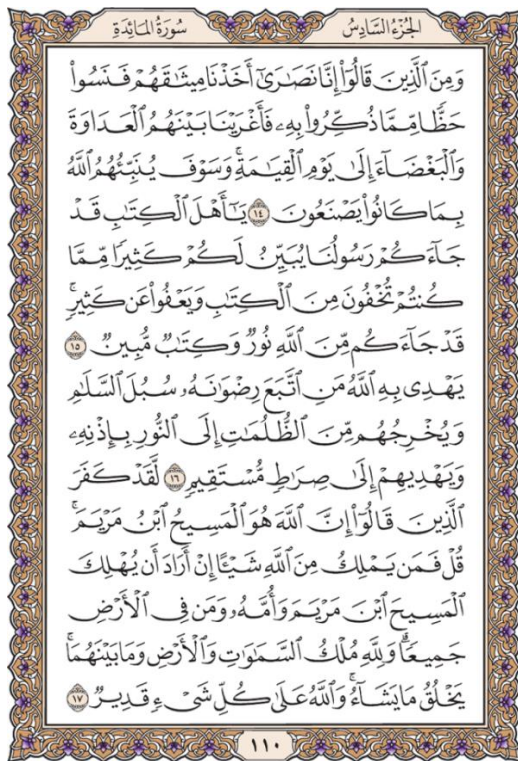 الجُزْءُ السَّادِسُ سُورَةُ المَائِدَةِ
وَمِنَ ٱلَّذِينَ قَالُوٓاْ إِنَّا نَصَٰرَىٰٓ أَخَذْنَا مِيثَٰقَهُمْ فَنَسُواْ
حَظًّا مِّمَّا ذُكِّرُواْ بِهِۦ فَأَغْرَيْنَا بَيْنَهُمُ ٱلْعَدَاوَةَ
وَٱلْبَغْضَآءَ إِلَىٰ يَوْمِ ٱلْقِيَٰمَةِۚ وَسَوْفَ يُنَبِّئُهُمُ ٱللَّهُ
بِمَا كَانُواْ يَصْنَعُونَ ١٤ يَٰٓأَهْلَ ٱلْكِتَٰبِ قَدْ
جَآءَكُمْ رَسُولُنَا يُبَيِّنُ لَكُمْ كَثِيرًا مِّمَّا
كُنتُمْ تُخْفُونَ مِنَ ٱلْكِتَٰبِ وَيَعْفُواْ عَن كَثِيرٍۚ
قَدْ جَآءَكُم مِّنَ ٱللَّهِ نُورٌ وَكِتَٰبٌ مُّبِينٌ ١٥
يَهْدِى بِهِ ٱللَّهُ مَنِ ٱتَّبَعَ رِضْوَٰنَهُۥ سُبُلَ ٱلسَّلَٰمِ
وَيُخْرِجُهُم مِّنَ ٱلظُّلُمَٰتِ إِلَى ٱلنُّورِ بِإِذْنِهِۦ
وَيَهْدِيهِمْ إِلَىٰ صِرَٰطٍ مُّسْتَقِيمٍ ١٦ لَّقَدْ كَفَرَ
ٱلَّذِينَ قَالُوٓاْ إِنَّ ٱللَّهَ هُوَ ٱلْمَسِيحُ ٱبْنُ مَرْيَمَۚ
قُلْ فَمَن يَمْلِكُ مِنَ ٱللَّهِ شَيْـًٔا إِنْ أَرَادَ أَن يُهْلِكَ
ٱلْمَسِيحَ ٱبْنَ مَرْيَمَ وَأُمَّهُۥ وَمَن فِى ٱلْأَرْضِ
جَمِيعًاۗ وَلِلَّهِ مُلْكُ ٱلسَّمَٰوَٰتِ وَٱلْأَرْضِ وَمَا بَيْنَهُمَاۚ
يَخْلُقُ مَا يَشَآءُۚ وَٱللَّهُ عَلَىٰ كُلِّ شَىْءٍ قَدِيرٌ ١٧
١١٠